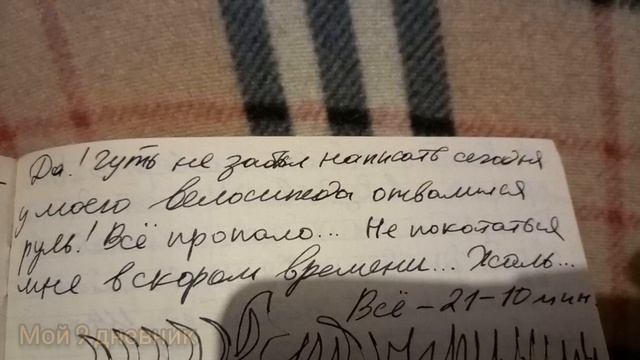 Да! Чуть не забыл написать сегодня
у моего велосипеда отвалился
руль! Всё пропало... Не покататься
мне в скором времени... Жаль...
Всё - 21-10 мин.
Мой 9 дневник